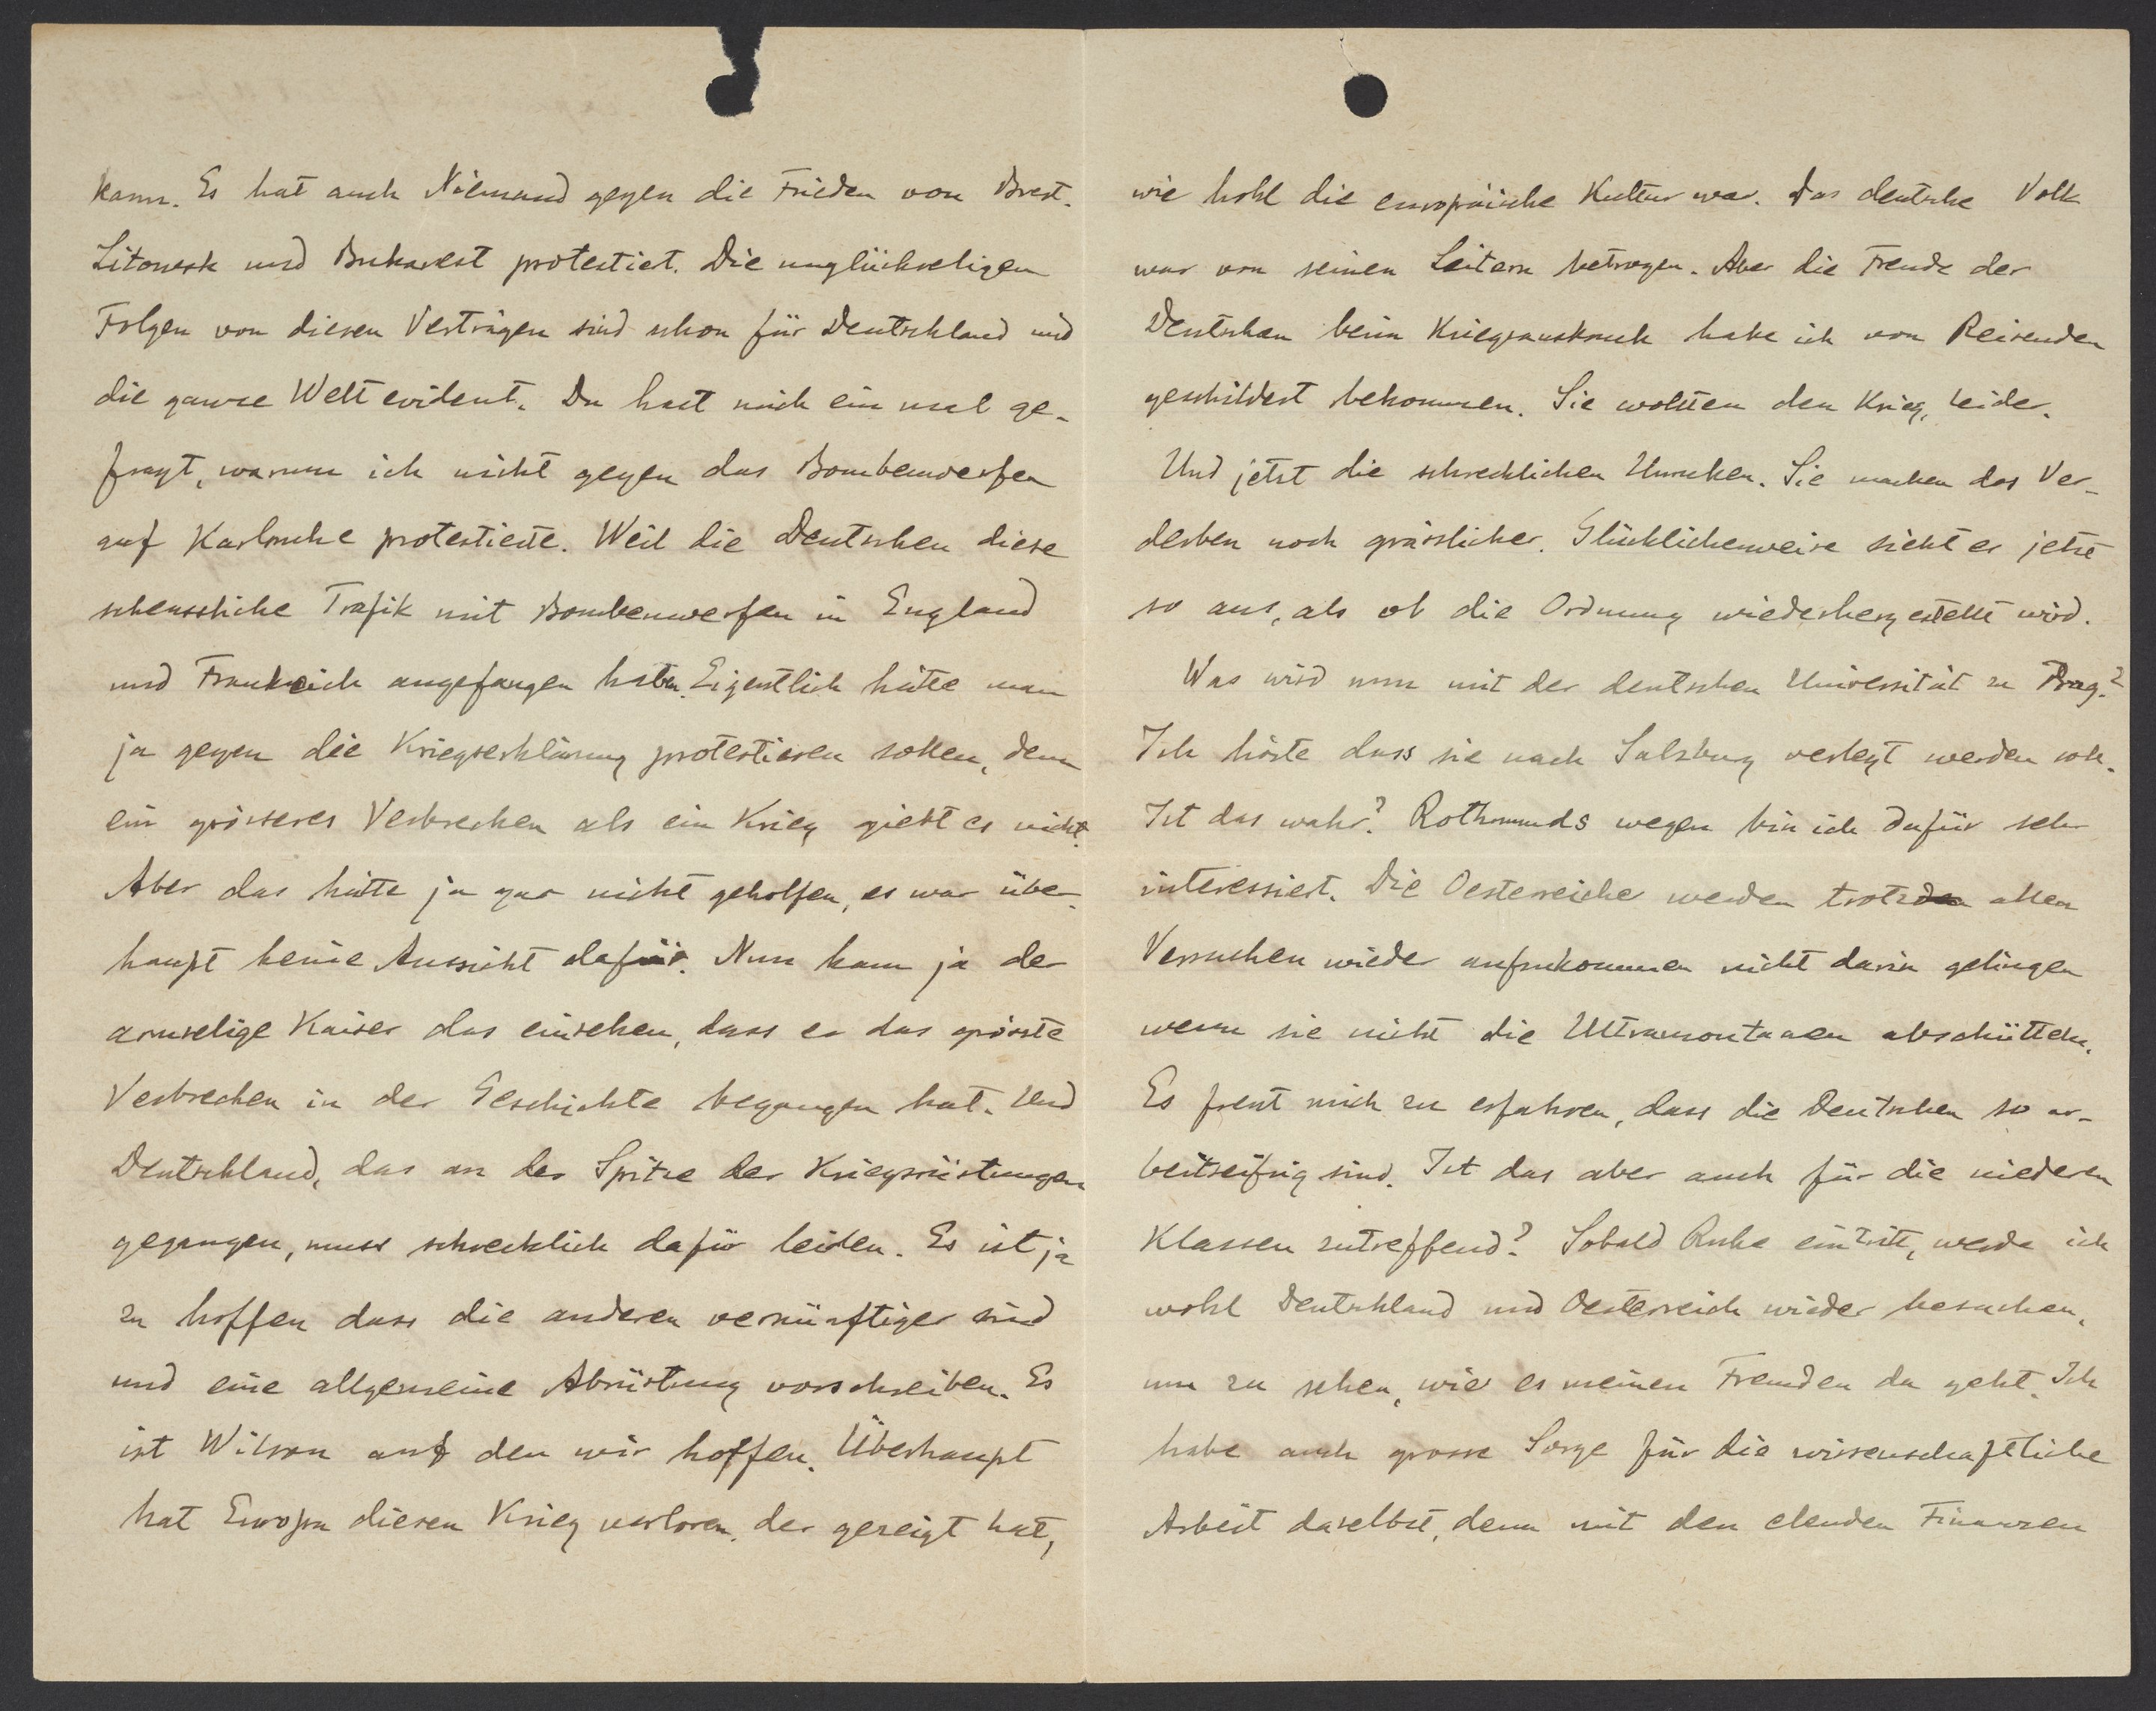 kann. Es hat auch Niemand gegen die Frieden von Brest.
Litowsk und Bukarest protestiert. Die unglückseligen
Folgen von diesen Verträgen sind schon für Deutschland und
die ganze Welt evident. Du hast mich ein mal ge-
fragt, warum ich nicht gegen das Bombenwerfen
auf Karlsruhe protestierte. Weil die Deutschen diese
scheussliche Trafik mit Bombenwerfen in England
und Frankreich angefangen haben. Eigentlich hätte man
ja gegen die Kriegserklärung protestieren sollen, denn
ein grösseres Verbrechen als ein Krieg giebt es nicht.
Aber das hätte ja gar nicht geholfen, es war über-
haupt keine Aussicht dafür. Nun kann ja der
armselige Kaiser das einsehen, dass er das grösste
Verbrechen in der Geschichte begangen hat. Und
Deutschland, das an der Spitze der Kriegsrüstungen
gegangen, muss schrecklich dafür leiden. Es ist ja
zu hoffen dass die anderen vernünftiger sind
und eine allgemeine Abrüstung vorschreiben. Es
ist Wilson auf den wir hoffen. Überhaupt
hat Europa diesen Krieg verloren, der gezeigt hat,
wie hohl die europäische Kultur war. Das deutsche Volk
war von seinen Leitern betrogen. Aber die Freude der
Deutschen beim Kriegsausbruch habe ich von Reisenden
geschildert bekommen. Sie wollten den Krieg, leider.
Und jetzt die schrecklichen Unruhen. Sie machen das Ver-
derben noch grässlicher. Glücklicherweise sieht es jetzt
so aus, als ob die Ordnung wiederhergestellt wird.
Was wird nun mit der deutschen Universität zu Prag?
Ich hörte dass sie nach Salzburg verlegt werden soll.
Ist das wahr? Rothmunds wegen bin ich dafür sehr
interessiert. Die Oesterreicher werden trotz allen
Versuchen wieder aufzukommen nicht darin gelingen
wenn sie nicht die Ultramontanen abschütteln.
Es freut mich zu erfahren, dass die Deutschen so ar-
beitseifrig sind. Ist das aber auch für die niederen
Klassen zutreffend? Sobald Ruhe eintritt, werde ich
wohl Deutschland und Oesterreich wieder besuchen,
um zu sehen, wie es meinen Freunden da geht. Ich
habe auch grosse Sorge für die wissenschaftliche
Arbeit daselbst, denn mit den elenden Finanzen